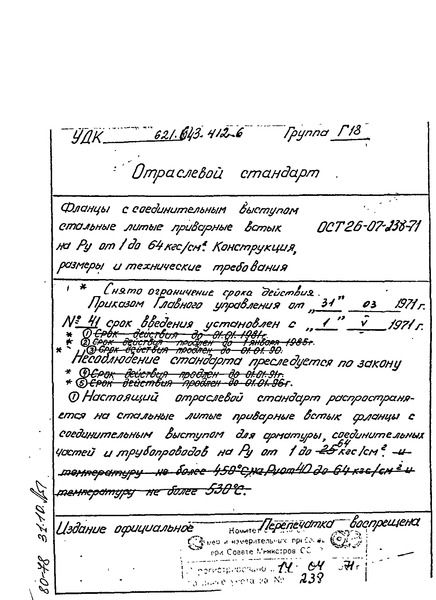 УДК 621.643.412-6 Группа Г18
Отраслевой стандарт
Фланцы с соединительным выступом
стальные литые приварные встык ОСТ 26-07-238-71
на Ру от 1 до 64 кгс/см². Конструкция,
размеры и технические требования
* Снято ограничение срока действия.
Приказом Главного управления от „31” 03 1971 г.
№ 41 срок введения установлен с „1” V 1971 г.
* ① Срок действия до 01.01.1981г.
* ② Срок действия продлен до 1 января 1986г.
* ③ Срок действия продлен до 01.01.90.
Несоблюдение стандарта преследуется по закону
* ④ Срок действия продлен до 01.01.91г.
* ⑤ Срок действия продлен до 01.01.96г.
① Настоящий отраслевой стандарт распространя-
ется на стальные литые приварные встык фланцы с
соединительным выступом для арматуры, соединительных
частей и трубопроводов на Ру от 1 до 25 64 кгс/см² и
температуру не более 450°С, на Ру от 40 до 64 кгс/см² и
температуру не более 530°С.
Издание официальное Перепечатка воспрещена
мер и измерительных приборов
при Совете Министров СС
14 04 71 г.
за № 238
80-48 31.10.